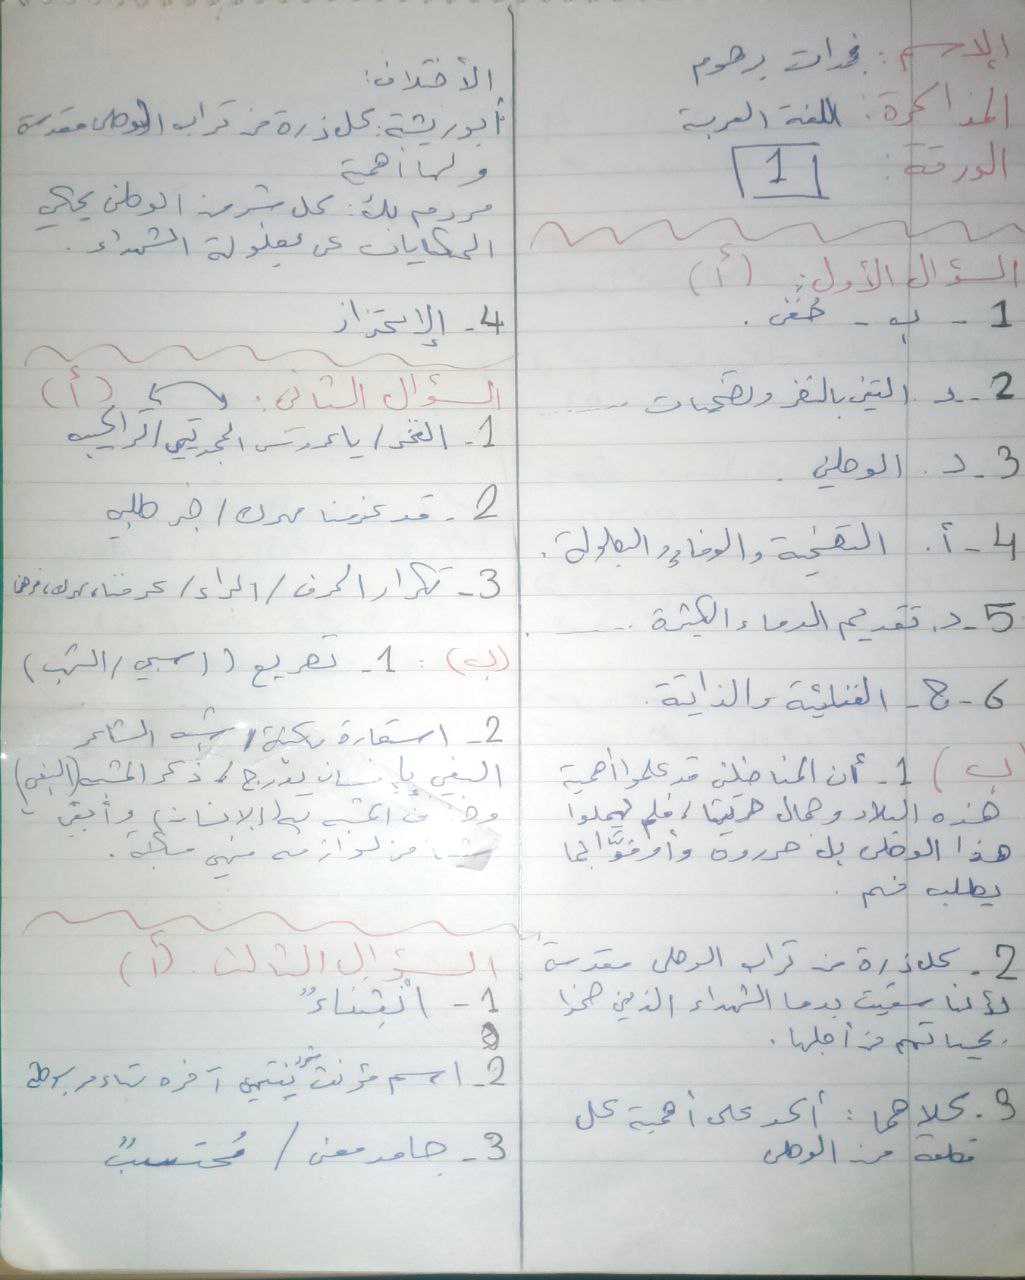 الإسم: برهوم
المذاكرة: اللغة العربية
الورقة: 1
السؤال الأول: (أ)
1 - ب -
2 - د. بالنفس وتضحيات ......
3 - د. الوطني.
4 - أ. التضحية والوفاء والبطولة.
5 - د. تقديم الدماء الكثيرة ......
6 - ج - الغنائية والذاتية.
ب) 1 - أن المناضلين قد علموا أهمية
هذه البلاد وجمال حريتها، فلم يهملوا
هذا الوطن بل حرروه وأوفوا بما
يطلب منهم.
2 - كل ذرة من تراب الوطن مقدسة
لأنها سقيت بدما الشهداء الذين ضحوا
بحياتهم من أجلها.
3 - كلاهما: أكد على أهمية كل
قطعة من الوطن
الأختلاف:
أبو ريشة: كل ذرة من تراب الوطن مقدسة
ولها أهمية
مردم بك: كل شبر من الوطن يحكي
الحكايات عن بطولة الشهداء.
4 - الإعتزاز
السؤال الثاني: (أ)
1 - الفخر / يا عروس المجد تيهي / تراكيب
2 - قد عرفنا مهرك / خبر طلبي
3 - تكرار الحرف / الراء / عرفنا، مهرك،
(ب): 1 - تصريع (اسحبي / الشهب)
2 - استعارة مكنية / شبه الشاعر
البغي بإنسان يدرج، ذكر المشبه (البغي)
وحذف المشبه به (الإنسان) وأبقى
شيئاً من لوازمه فهي مكنية.
السؤال الثالث (أ)
1 -
2 - اسم مؤنث ينتهي آخره بتاء مربوطة
3 - جامد معنى / مُحتسبٌ